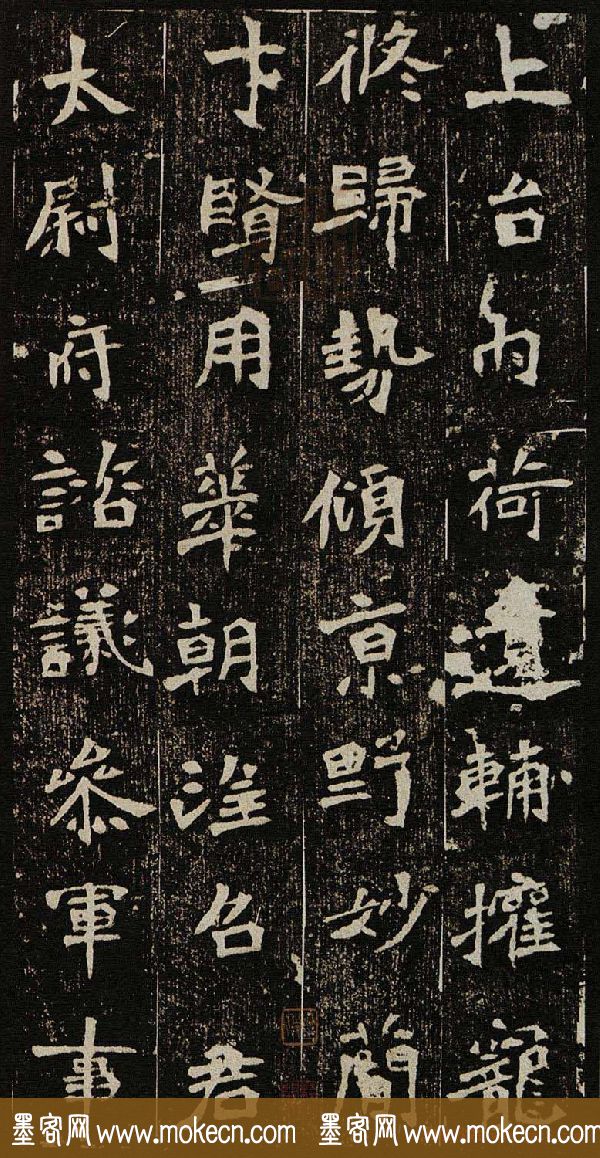 上台內荷遺輔權寵
攸歸勢傾京野妙簡
才賢用華朝召君
太尉府諮議參軍事
墨客网 www.mokecn.com 墨客网 www.mokecn.com